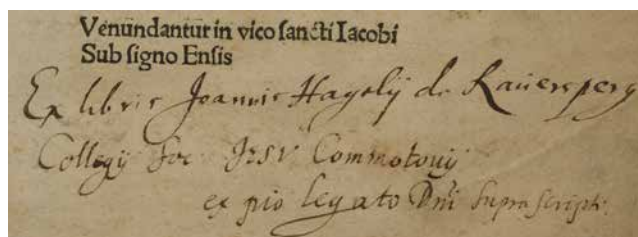 Venundantur in vico sancti Iacobi
Sub signo Ensis
Ex libris Joannis Hagelÿ de Rauersperg
Collegÿ Soc JESV Commotouÿ
ex pio legato Dni suprascripti.